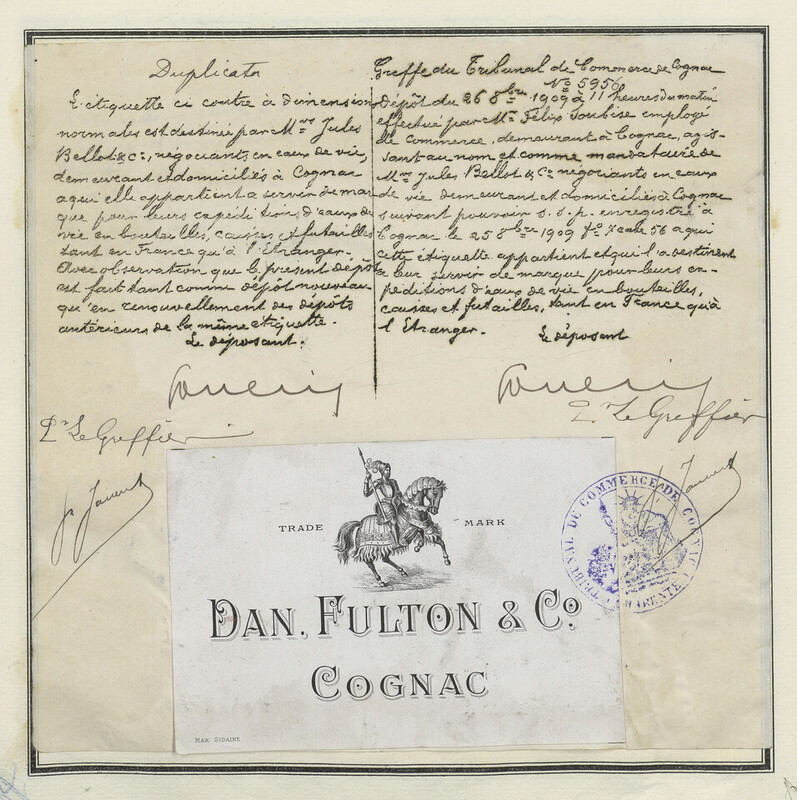 Duplicata
L'étiquette ci contre à dimensions
normales est destinée par Mrs Jules
Bellot & Cie, négociants en eaux de vie,
demeurant et domiciliés à Cognac
a qui elle appartient a servir de mar
que pour leurs expéditions d'eaux de
vie en bouteilles, caisses et futailles
tant en France qu'à l'Etranger.
Avec observation que le présent dépôt
est fait tant comme dépôt nouveau
qu'en renouvellement des dépôts
antérieurs de la même étiquette.
Le déposant.
Pr Le Greffier
Greffe du Tribunal de Commerce de Cognac
No 5956
Dépôt du 26 8bre 1909 à 11 heures du matin
effectué par Mr Félix Soubise employé
de commerce, demeurant à Cognac, agis-
sant au nom et comme mandataire de
Mrs Jules Bellot & Cie négociants en eaux
de vie demeurant et domiciliés à Cognac
suivant pouvoir s.s.p. enregistré à
Cognac le 25 8bre 1909 fo 7 case 56 a qui
cette étiquette appartient et qui l'a destinent
a leur servir de marque pour leurs ex-
péditions d'eaux de vie en bouteilles,
caisses et futailles, tant en France qu'à
l'Etranger.
Le déposant
Pr Le Greffier
TRADE MARK
DAN. FULTON & Co
COGNAC
MAX. SIDAINE
TRIBUNAL DE COMMERCE DE COGNAC (CHARENTE)